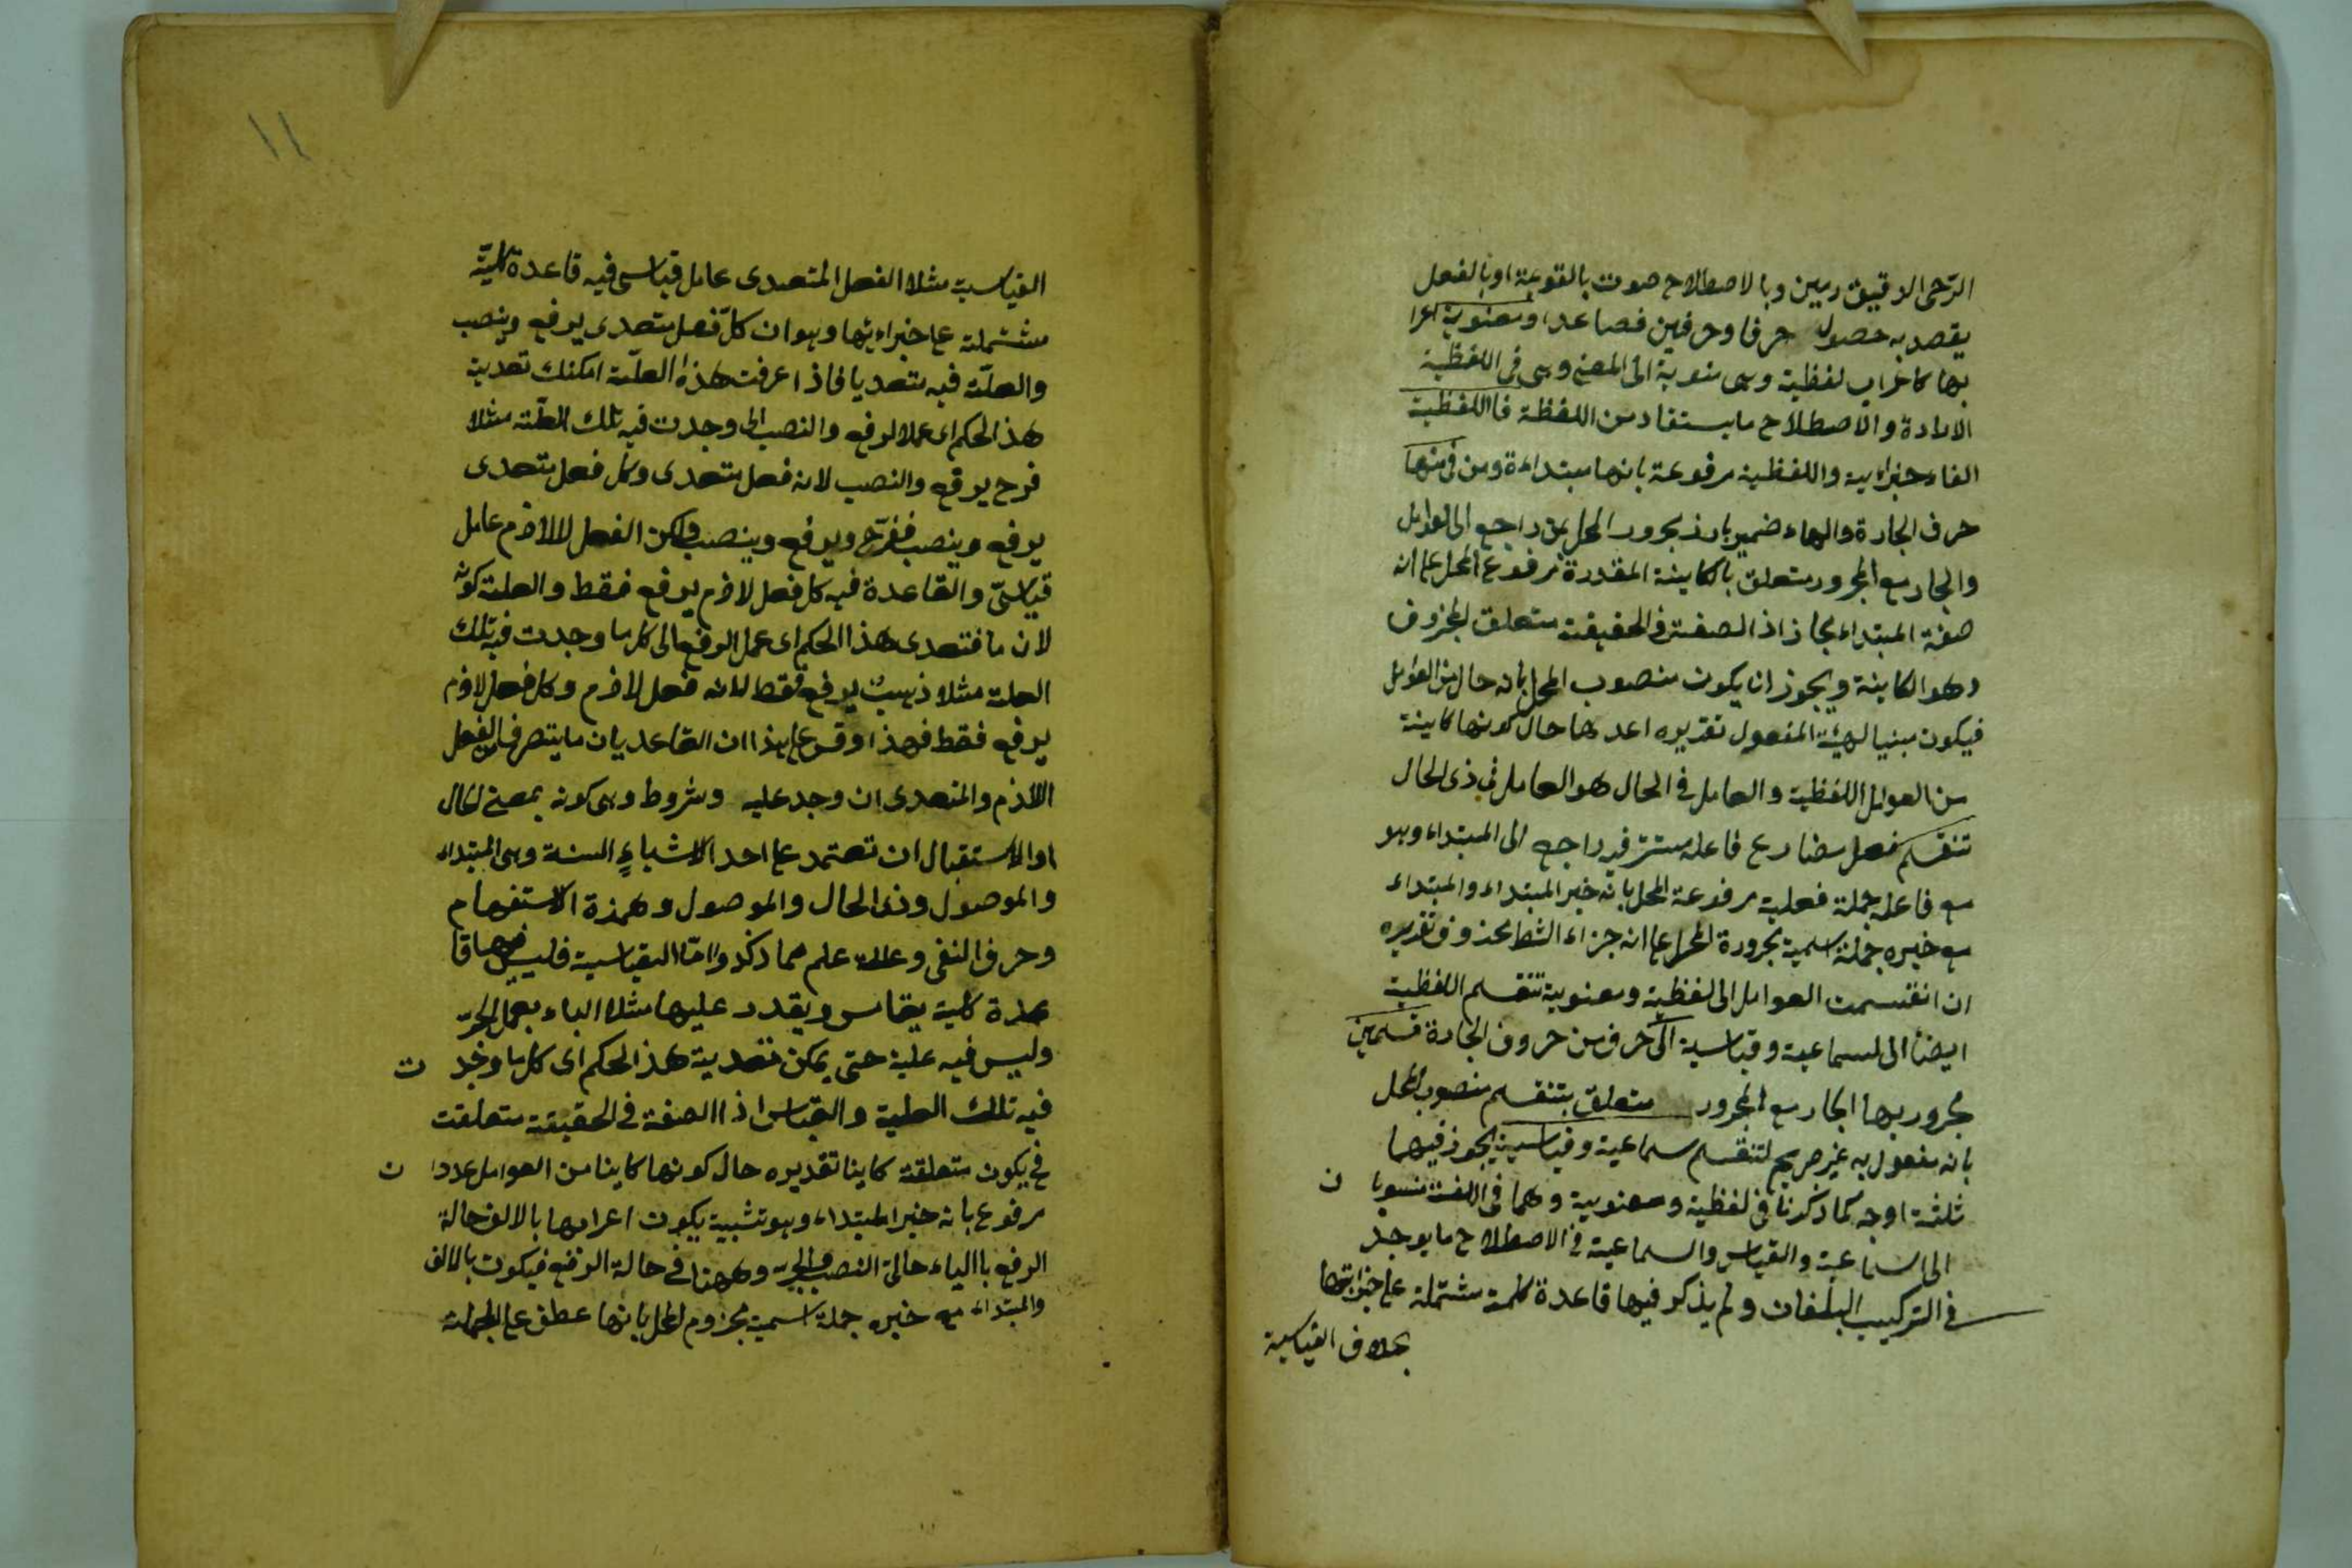 الرحى الدقيق رمين وبالاصطلاح صوت بالقوة او بالفعل
يقصد به حصول حرفا وحرفين فصاعدا ومعنوية
بها كاعراب لفظية وهى منوبة الى المعنى وهى فى اللفظية
الارادة والاصطلاح ما يستفاد من اللفظة فااللفظية
الفاء جزاءية واللفظية مرفوعة بانها مبتداءة ومن فى منها
حرف الجارة والهاء ضمير بارز مجرور المحل بمن راجع الى العوامل
والجار مع المجرور متعلق باالكاينة المقدرة مرفوع المحل على انه
صفة المبتداء مجاز اذ الصفة فى الحقيقة متعلق المحذوف
وهو الكاينة ويجوز ان يكون منصوب المحل بانه حال من العوامل
فيكون مبنيا لهيئة المفعول تقديره اعدها حال كونها كاينة
من العوامل اللفظية والعامل فى الحال هو العامل فى ذى الحال
تنقسم فعل مضارع فاعله مستتر فيه راجع الى المبتداء وهو
مع فاعله جملة فعلية مرفوعة المحل بانه خبر المبتداء والمبتداء
مع خبره جملة اسمية مجرورة المحل على انه جزاء الشط محذوف تقديره
ان انقسمت العوامل الى لفظية ومعنوية تنقسم اللفظية
ايضا الى سماعية وقياسية الى حرف من حروف الجارة قسمين
مجرور بها الجار مع المجرور متعلق بتنقسم منصوب المحل
بانه مفعول به غير صريح لتنقسم سماعية وقياسية يجوز فيهما
ثلثة اوجه كما ذكرنا فى لفظية ومعنوية وهما فى اللغة منسوبا ن
الى السماعية والقياس والسماعية فى الاصطلاح ما يوجد
فى التركيب البلغان ولم يذكر فيها قاعدة كلمة مشتملة على جزاءيتها
بخلاف القياسية
١١
القياسية مثلا الفعل المتعدى عامل قياسى فيه قاعدة كلية
مشتملة على جزاءيتها وهو ان كل فعل متعدى يرفع وينصب
والعلة فيه متعديا فاذا عرفت هذه العلة امكنك تعدية
هذ الحكم اى عملا لرفع والنصب الى وجدت فيه تلك العلة مثلا
فرح يرفع والنصب لانه فعل متعدى وكل فعل متعدى
يرفع وينصب ففرح ويرفع وينصب ولكن الفعل اللازم عامل
قياسى والقاعدة فيه كل فعل لازم يرفع فقط والعلة كونه
لان ما فتعدى هذا الحكم اى عمل الرفع الى كل ما وجدت فيه تلك
العلة مثلا ذهبت يرفع فقط لانه فعل لازم وكل فعل لازم
يرفع فقط فهذا وقس على هذا ان القاعد يان ما يتصرف الفعل
اللازم والمتعدى ان وجد عليه وشروط وهى كونه بمعنى الحال
او الاستقبال ان تعتمد على احد الاشياء الستة وهى المبتداء
والموصول وذى الحال والموصول وهمزة الاستفهام
وحرف النفى وعلله علم مما ذكر واما القياسية فليس فيها قا
عدة كلية يقاس ويقدر عليها مثلا الباء بعمل الجر
وليس فيه علية حتى يمكن تعدية هذ الحكم اى كل ما وجد ت
فيه تلك العلية والقياس اذا الصفة فى الحقيقة متعلقت
فى يكون متعلقة كاينا تقديره حال كونها كاينا من العوامل عددا ن
مرفوع بانه خبر المبتداء وهو تشبية يكون اعرابها بالالف حالة
الرفع باالياء حالة النصب والجر وههنا فى حالة الرفع فيكون بالالف
والمبتداء مع خبره جملة اسمية مجزوم المحل بانها عطف على الجملة